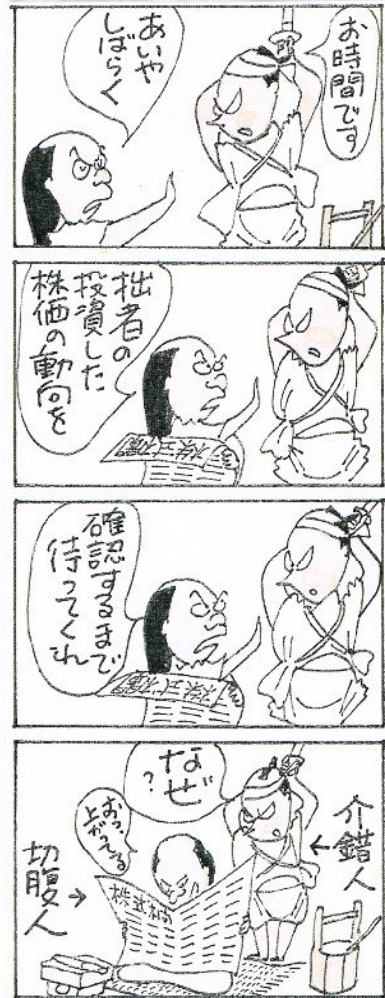 お時間です
あいや
しばらく
拙者の
投資した
株価の動向を
確認するまで
待ってくれ
なぜ
?
おっ
上がってる
介錯人
切腹人